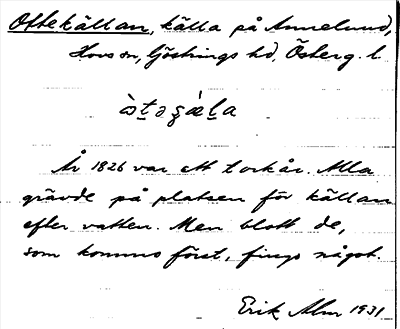 Oftekällan, källa på Annelund,
Hovs sn, Göstrings hd, Österg. l.
År 1826 var ett torkår. Alla
grävde på platsen för källan
efter vatten. Men blott de,
som kommo först, fingo något.
Erik Alm 1931